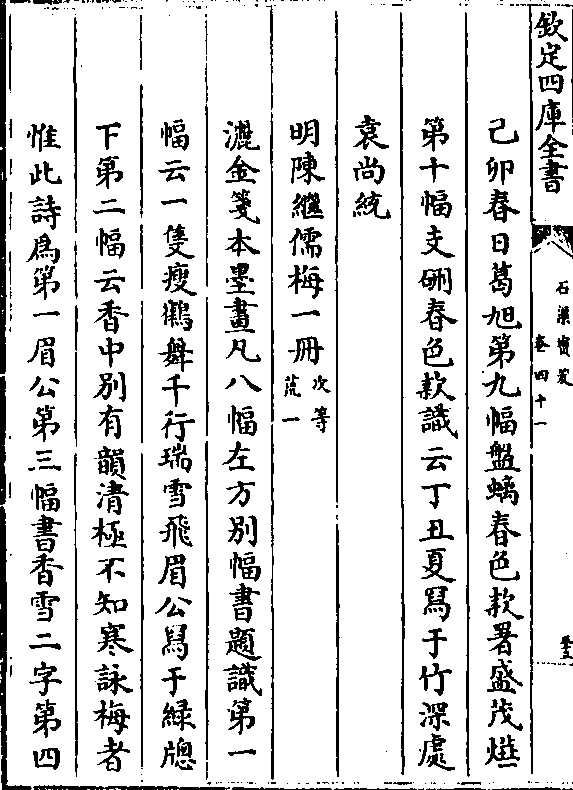 欽定四庫全書
石渠寶笈
卷四十一
己卯春日葛旭第九幅盤螭春色款署盛茂燁
第十幅支硎春色款識云丁丑夏冩于竹深處
袁尚統
明陳繼儒梅一冊次等荒一
灑金箋本墨畫凡八幅左方别幅書題識第一
幅云一隻瘦鶴舞千行瑞雪飛眉公冩于緑牕
下第二幅云香中别有韻清極不知寒詠梅者
惟此詩爲第一眉公第三幅書香雪二字第四